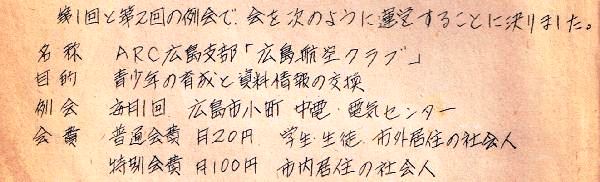 第1回と第2回の例会で、会を次のように運営することに決りました。
名称 ARC広島支部「広島航空クラブ」
目的 青少年の育成と資料情報の交換
例会 毎月1回 広島市小町 中電・電気センター
会費 普通会費 月20円 学生・生徒・市外居住の社会人
特別会費 月100円 市内居住の社会人